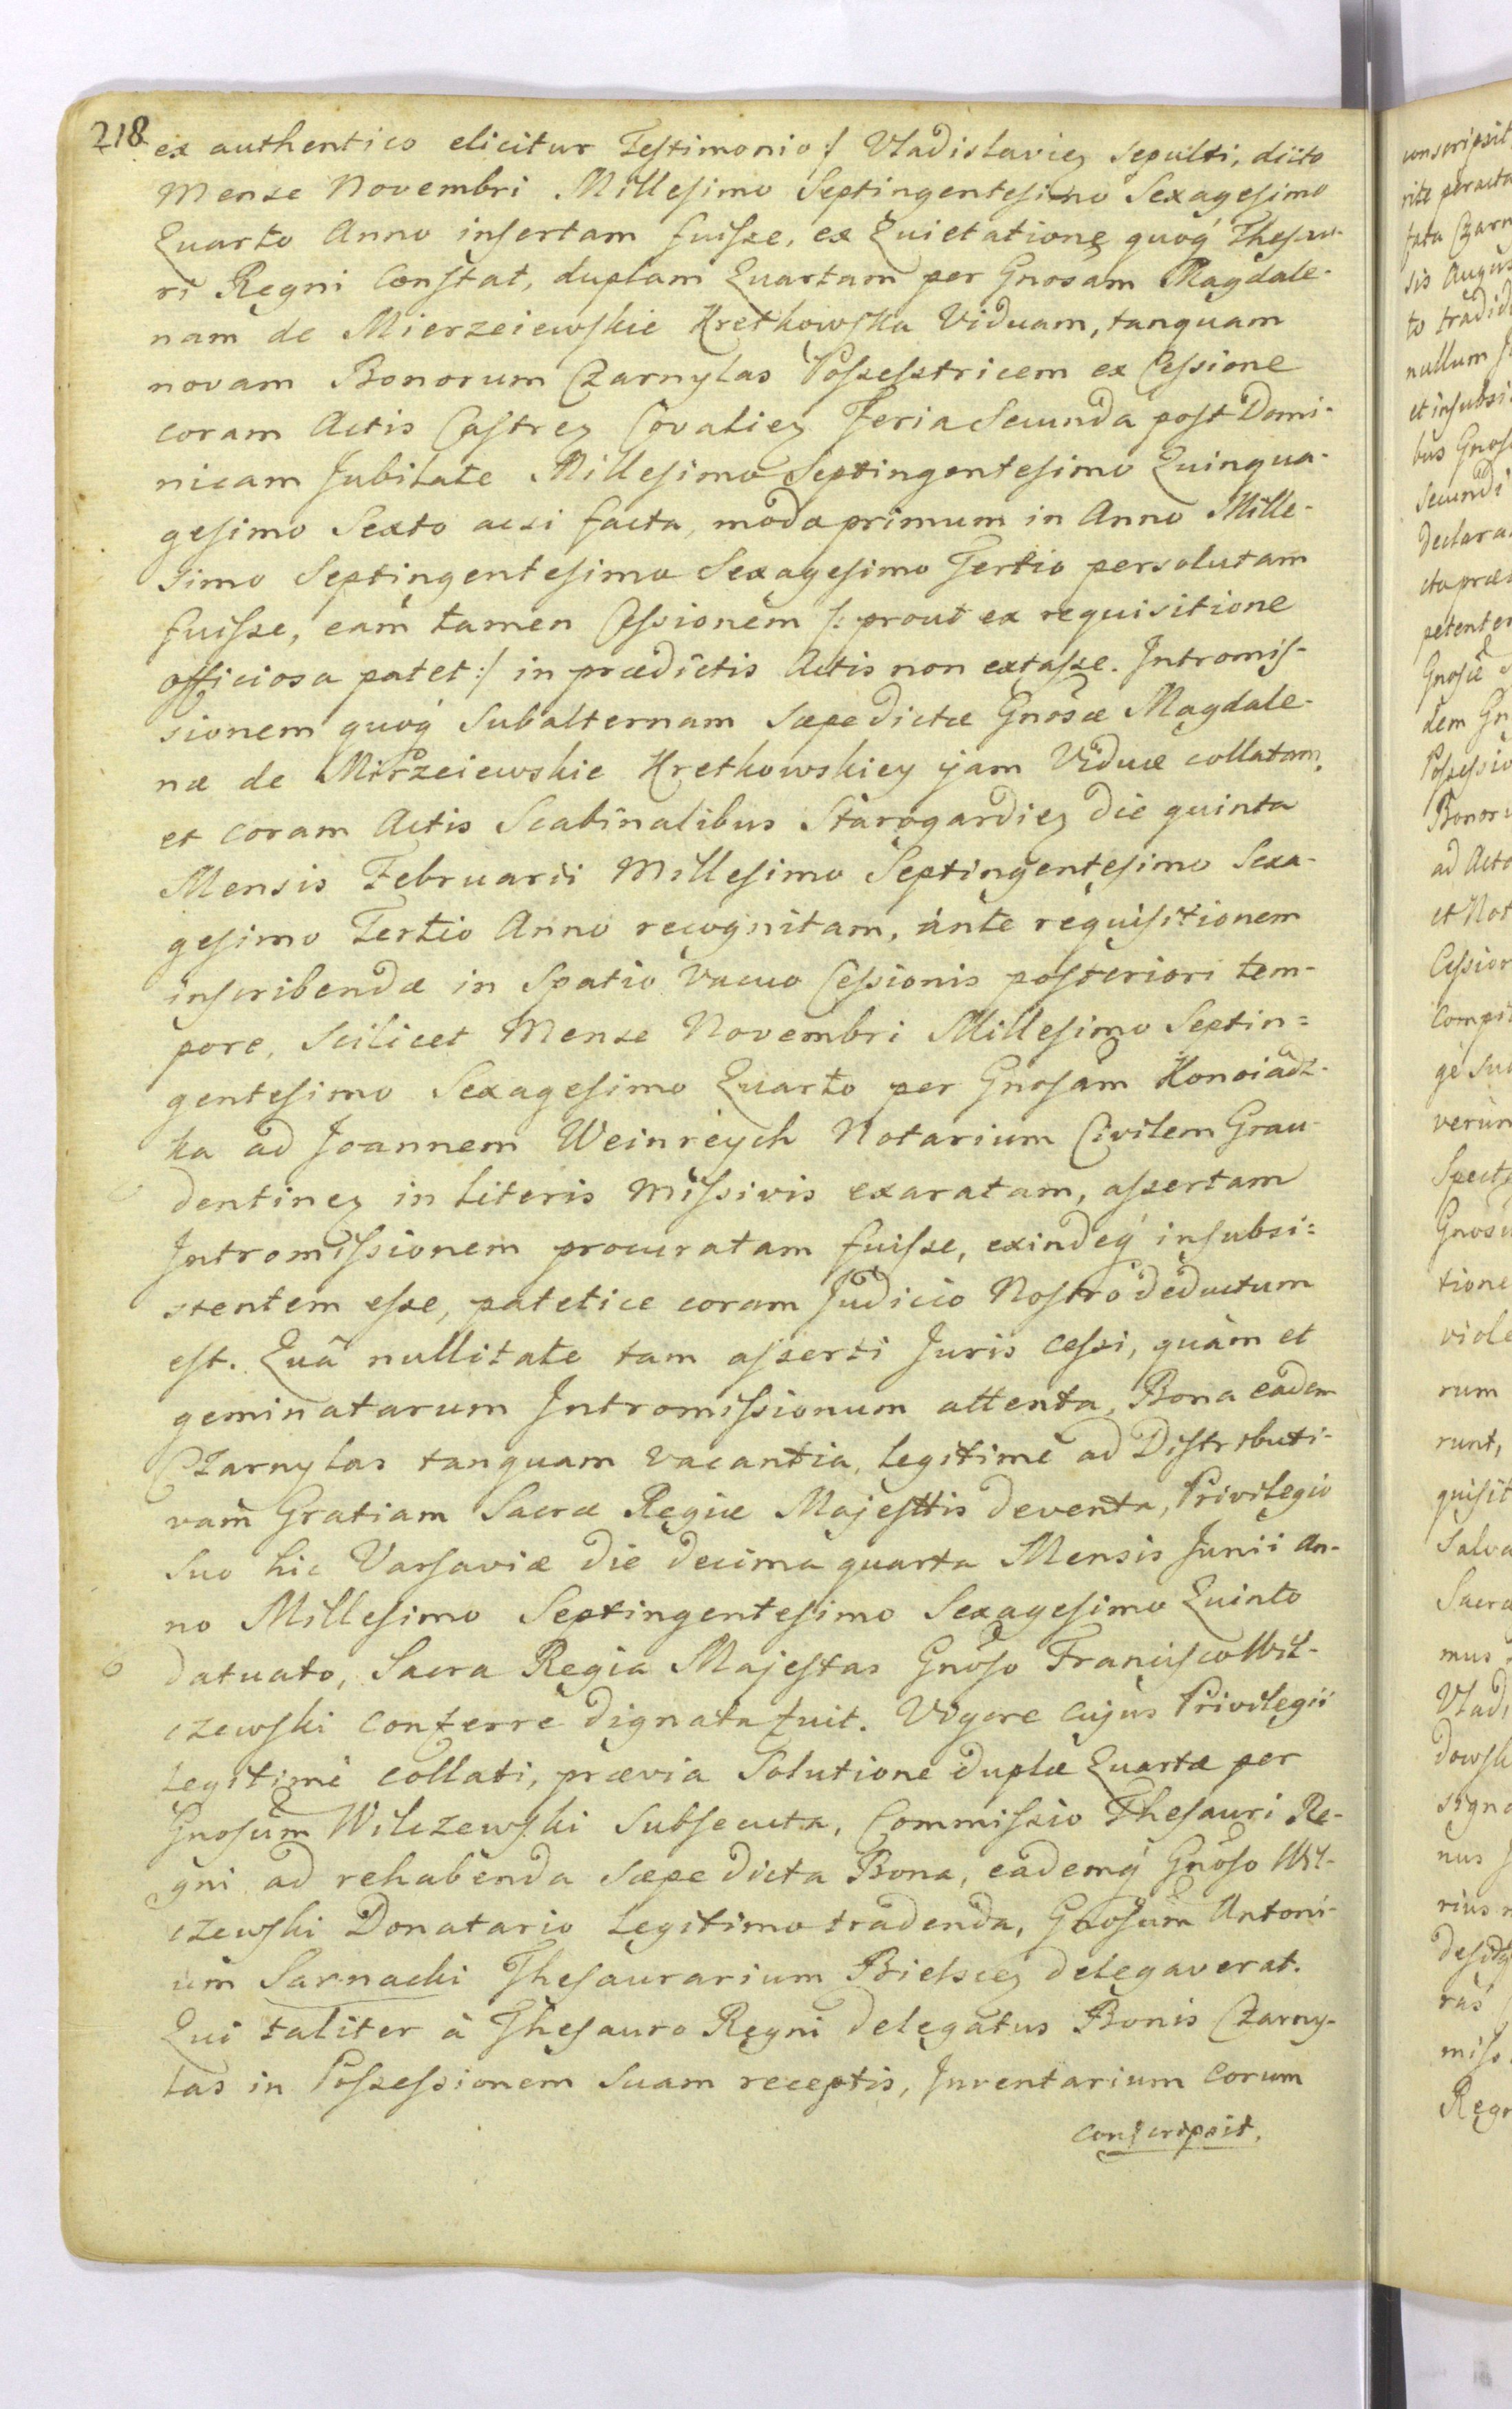 218
ex authentico elicitur Testimonio :/ Vladislaviez sepulti, dicto
Mense Novembri Millesimo Septingentesimo Sexagesimo
Quarto Anno insertam fuisse, ex Quietatione quoq́ Thesau-
ri Regni Constat, duplam Quartam per Gnosam Magdale-
nam de Mierzeiewskie Kretkowska Viduam, tanquam
novam Bonorum Czarnylas Possesstricem ex Cessione
coram Actis Castrez Covaliez Feria Secunda post Domi-
nicam Jubilate Millesimo Septingentesimo Quinqua-
gesimo Sexto acsi facta, modo primum in Anno Mille-
simo Septingentesimo Sexagesimo Tertio persolutam
fuisse, eam tamen Cessionem /: prout ex requisitione
officiosa patet :/ in prædictis Actis non extasse. Intromis-
sionem quoq́ subalternam sæpe dictæ Gnosæ Magdale-
næ de Mirzeiewskie Kretkowskiey jam Viduæ collatam,
et coram Actis Scabinalibus Starogardiez die quinta
Mensis Februarii Millesimo Septingentesimo Sexa-
gesimo Tertio Anno recognitam, ante requisitionem
inscribendæ in Spatio vacuo Cessionis posteriori tem-
pore, scilicet Mense Novembri Millesimo Septin=
gentesimo Sexagesimo Quarto per Gnosam Konoiadz-
ka ad Joannem Weinreych Notarium Civilem Grau-
dentinez in Literis Missivis exaratam, assertam
Intromissionem procuratam fuisse, exindeq́ insubsi=
stentem esse, patetice coram Judicio Nostro deductum
est. Quâ nullitate tam asserti Juris cessi, quàm et
geminatarum Intromissionum attenta, Bona eadem
Czarnylas tanquam vacantia, legitimè ad Distributi-
vam Gratiam Sacræ Regiæ Majesttis deventa, Privilegio
suo hic Varsaviæ die decima quarta Mensis Junii An-
no Millesimo Septingentesimo Sexagesimo Quinto
datuato, Sacra Regia Majestas Gnoso Francisco Wil-
czewski conferre dignata fuit. Vigore cujus Privilegii
legitimè collati, prævia Solutione duplæ Quartæ per
Gnosum Wilczewski subsecuta, Commissio Thesauri Re-
gni ad rehabenda sæpe dicta Bona, eademq́ Gnoso Wil-
czewski Donatario legitimo tradenda, Gnosum Antoni-
um Sarnacki Thesaurarium Bielscez delegaverat.
Qui taliter à Thesauro Regni delegatus Bonis Czarny-
las in Possessionem suam receptis, Inventarium eorum
conscripsit,